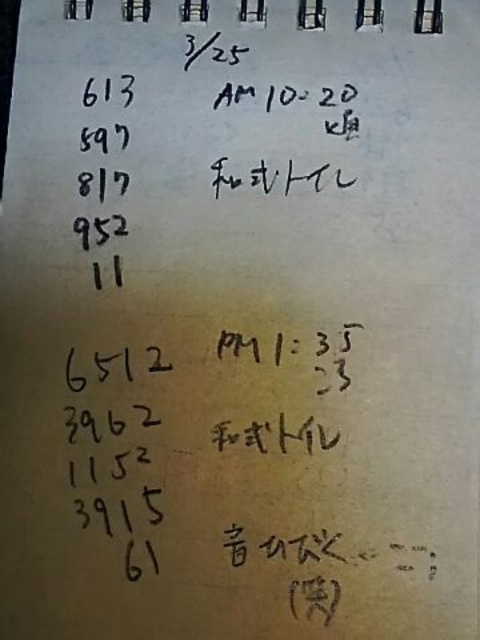 3/25
613 AM 10:20
頃
597
817 和式トイレ
952
11
6512 PM 1:35
23
3962 和式トイレ
1152
3915
61 音ひびく
(笑)